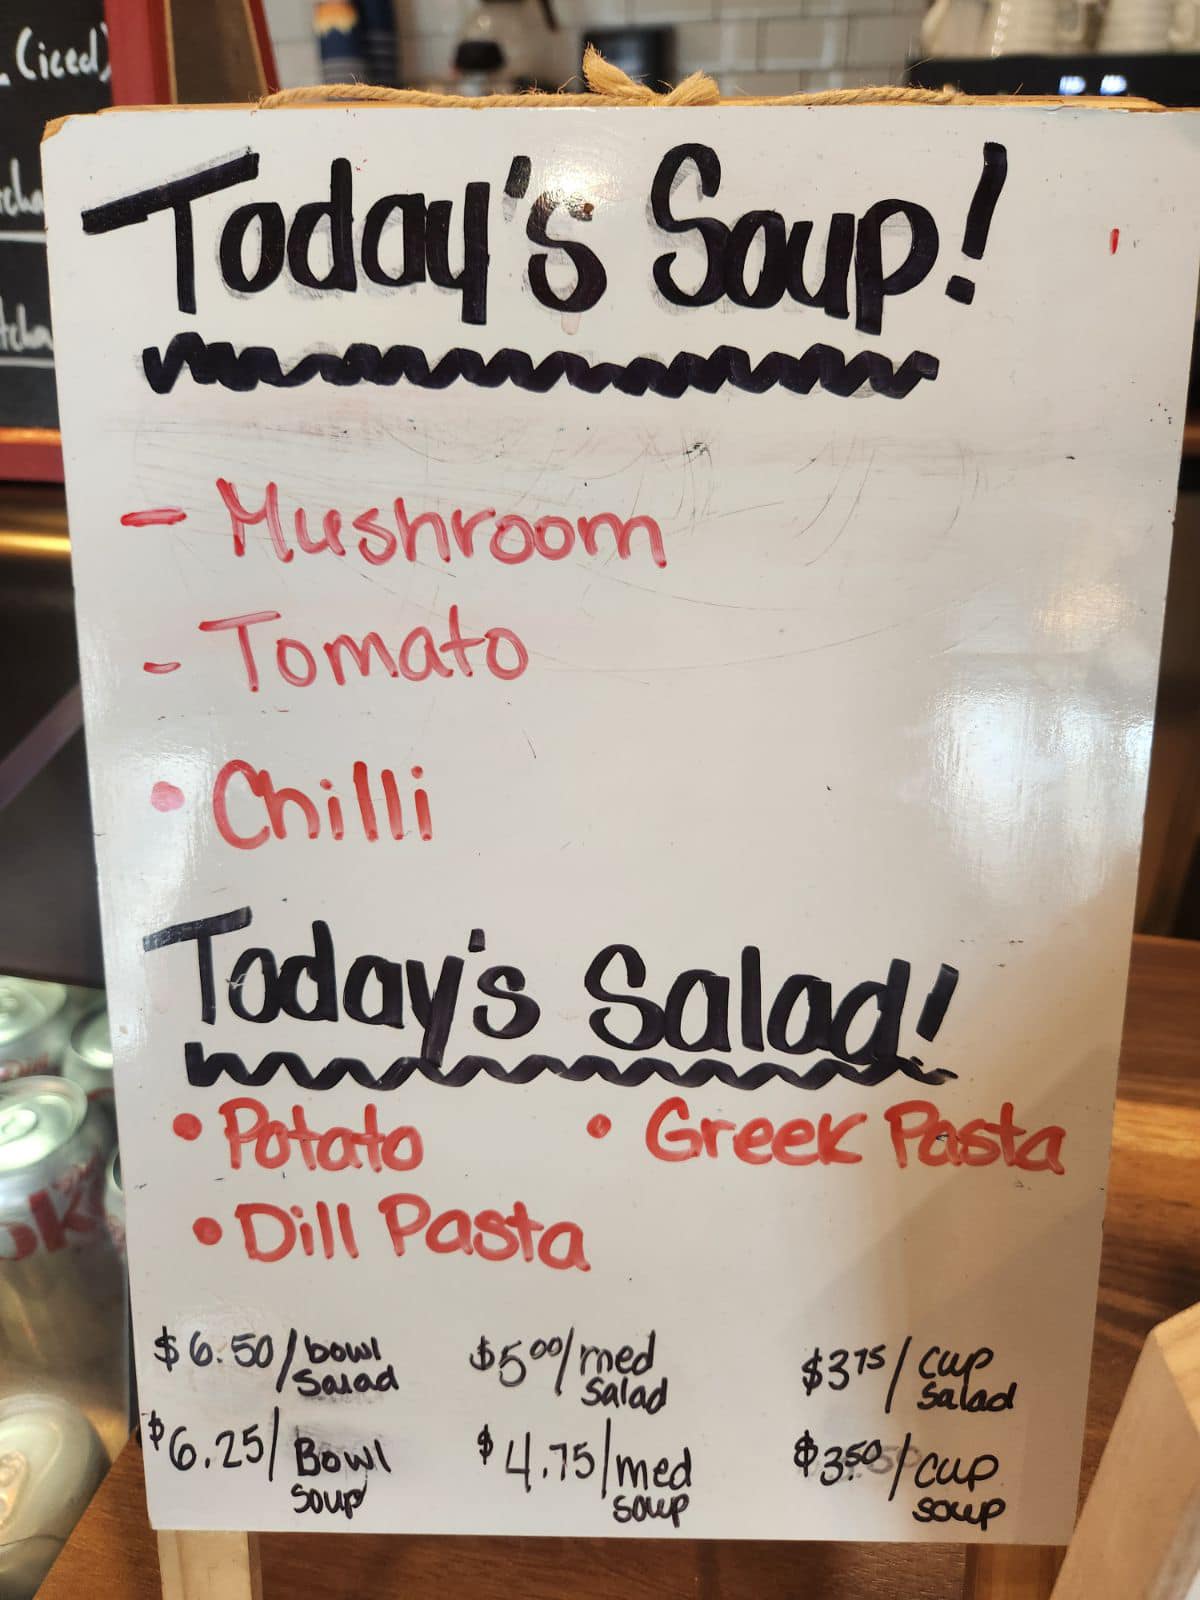 (iced)
Today's Soup!
- Mushroom
- Tomato
• Chilli
Today's Salad!
• Potato • Greek Pasta
• Dill Pasta
$6.50/bowl salad $5.00/med salad $3.75/cup salad
$6.25/Bowl soup $4.75/med soup $3.50/cup soup